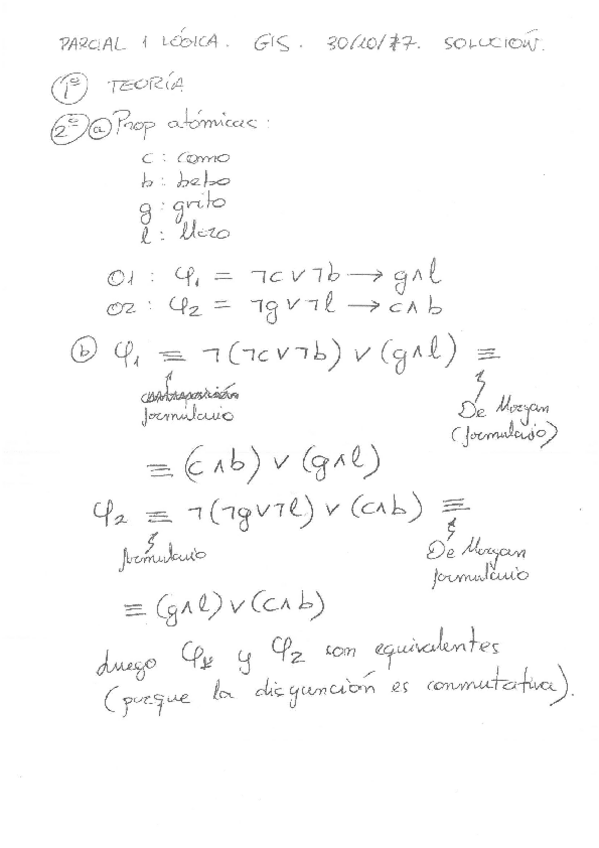 PARCIAL 1 LÓGICA. GIS. 30/10/17. SOLUCIÓN.
1º TEORÍA
2º a Prop atómicas:
c : como
b : bebo
g : grito
l : lloro
O1 : φ₁ = ¬c∨¬b → g∧l
O2 : φ₂ = ¬g∨¬l → c∧b
b φ₁ ≡ ¬(¬c∨¬b) ∨ (g∧l) ≡
contraposición
formulario
De Morgan
(formulario)
≡ (c∧b) ∨ (g∧l)
φ₂ ≡ ¬(¬g∨¬l) ∨ (c∧b) ≡
formulario
De Morgan
formulario
≡ (g∧l)∨(c∧b)
Luego φ₁ y φ₂ son equivalentes
(porque la disyunción es conmutativa).